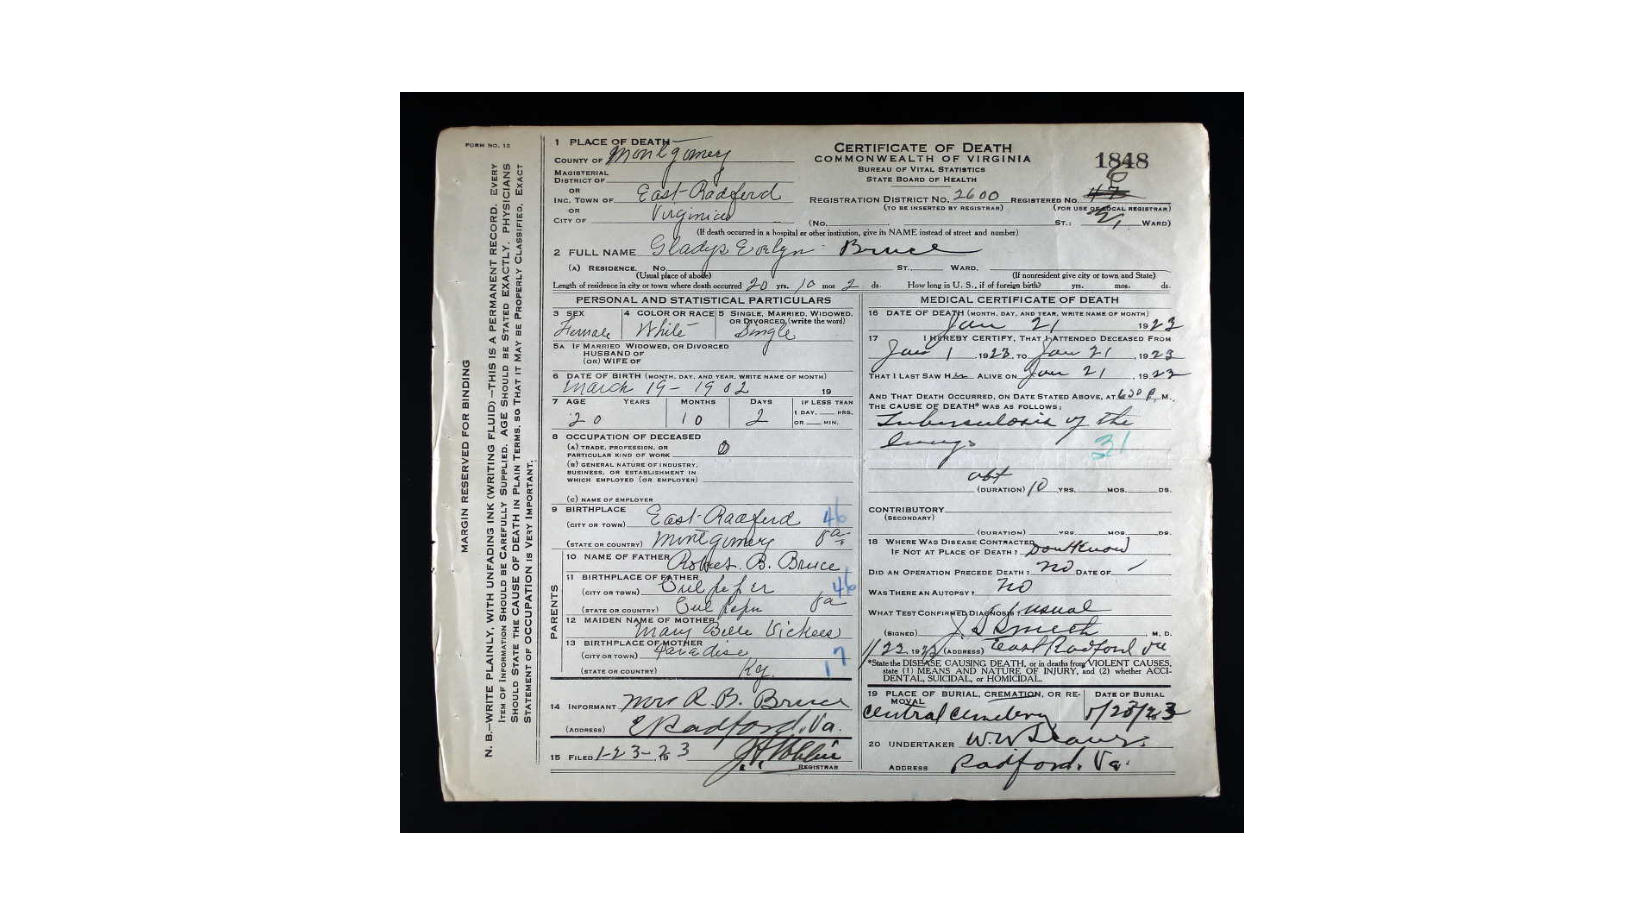 FORM NO. 12
MARGIN RESERVED FOR BINDING
N. B.—WRITE PLAINLY, WITH UNFADING INK (WRITING FLUID)—THIS IS A PERMANENT RECORD. EVERY
ITEM OF INFORMATION SHOULD BE CAREFULLY SUPPLIED. AGE SHOULD BE STATED EXACTLY. PHYSICIANS
SHOULD STATE THE CAUSE OF DEATH IN PLAIN TERMS, SO THAT IT MAY BE PROPERLY CLASSIFIED. EXACT
STATEMENT OF OCCUPATION IS VERY IMPORTANT.
1 PLACE OF DEATH
COUNTY OF Montgomery
MAGISTERIAL
DISTRICT OF
OR
INC. TOWN OF East-Radford
OR
CITY OF Virginia
CERTIFICATE OF DEATH
COMMONWEALTH OF VIRGINIA
BUREAU OF VITAL STATISTICS
STATE BOARD OF HEALTH
1848
REGISTRATION DISTRICT NO. 2600 REGISTERED NO. 6
(TO BE INSERTED BY REGISTRAR) (FOR USE OF LOCAL REGISTRAR)
(No. ST.; WARD)
(If death occurred in a hospital or other institution, give its NAME instead of street and number)
2 FULL NAME Gladys Evelyn Bruce
(A) RESIDENCE. No. ST., WARD.
(Usual place of abode) (If nonresident give city or town and State)
Length of residence in city or town where death occurred 20 yrs. 10 mos 2 ds. How long in U. S., if of foreign birth? yrs. mos. ds.
PERSONAL AND STATISTICAL PARTICULARS
3 SEX
Female
4 COLOR OR RACE
White
5 SINGLE, MARRIED, WIDOWED,
OR DIVORCED (write the word)
Single
5A IF MARRIED WIDOWED, OR DIVORCED
HUSBAND OF
(OR) WIFE OF
6 DATE OF BIRTH (MONTH, DAY, AND YEAR, WRITE NAME OF MONTH)
March 19-1902 19
7 AGE YEARS MONTHS DAYS IF LESS THAN
1 DAY, HRS.
OR MIN.
20 10 2
8 OCCUPATION OF DECEASED
(A) TRADE, PROFESSION, OR
PARTICULAR KIND OF WORK 0
(B) GENERAL NATURE OF INDUSTRY,
BUSINESS, OR ESTABLISHMENT IN
WHICH EMPLOYED (OR EMPLOYER)
(C) NAME OF EMPLOYER
9 BIRTHPLACE
(CITY OR TOWN) East-Radford 46
(STATE OR COUNTRY) Montgomery Va
PARENTS
10 NAME OF FATHER Robert B. Bruce
11 BIRTHPLACE OF FATHER
(CITY OR TOWN) Culpeper 46
(STATE OR COUNTRY) Culpeper Va
12 MAIDEN NAME OF MOTHER
Mary Belle Vickers
13 BIRTHPLACE OF MOTHER
(CITY OR TOWN) Paradise
(STATE OR COUNTRY) Ky. 17
14 INFORMANT Mrs R. B. Bruce
(ADDRESS) E Radford, Va.
15 FILED 1-23-23
REGISTRAR
MEDICAL CERTIFICATE OF DEATH
16 DATE OF DEATH (MONTH, DAY, AND YEAR, WRITE NAME OF MONTH)
Jan 21 1923
17 I HEREBY CERTIFY, THAT I ATTENDED DECEASED FROM
Jan 1, 1923, TO Jan 21, 1923
THAT I LAST SAW Her ALIVE ON Jan 21, 1923
AND THAT DEATH OCCURRED, ON DATE STATED ABOVE, AT 6 30 P. M.
THE CAUSE OF DEATH* WAS AS FOLLOWS:
Tuberculosis of the
lungs 31
abt
(DURATION) 10 YRS. MOS. DS.
CONTRIBUTORY
(SECONDARY)
(DURATION) YRS. MOS. DS.
18 WHERE WAS DISEASE CONTRACTED
IF NOT AT PLACE OF DEATH? Don't know
DID AN OPERATION PRECEDE DEATH? no DATE OF
WAS THERE AN AUTOPSY? no
WHAT TEST CONFIRMED DIAGNOSIS? usual
(SIGNED) J. S. Smith M. D.
1/22, 1923 (ADDRESS) East Radford Va
*State the DISEASE CAUSING DEATH, or in deaths from VIOLENT CAUSES,
state (1) MEANS AND NATURE OF INJURY, and (2) whether ACCI-
DENTAL, SUICIDAL, or HOMICIDAL.
19 PLACE OF BURIAL, CREMATION, OR RE-
MOVAL DATE OF BURIAL
Central Cemetery 1/23/23
20 UNDERTAKER W. W.
ADDRESS Radford, Va.